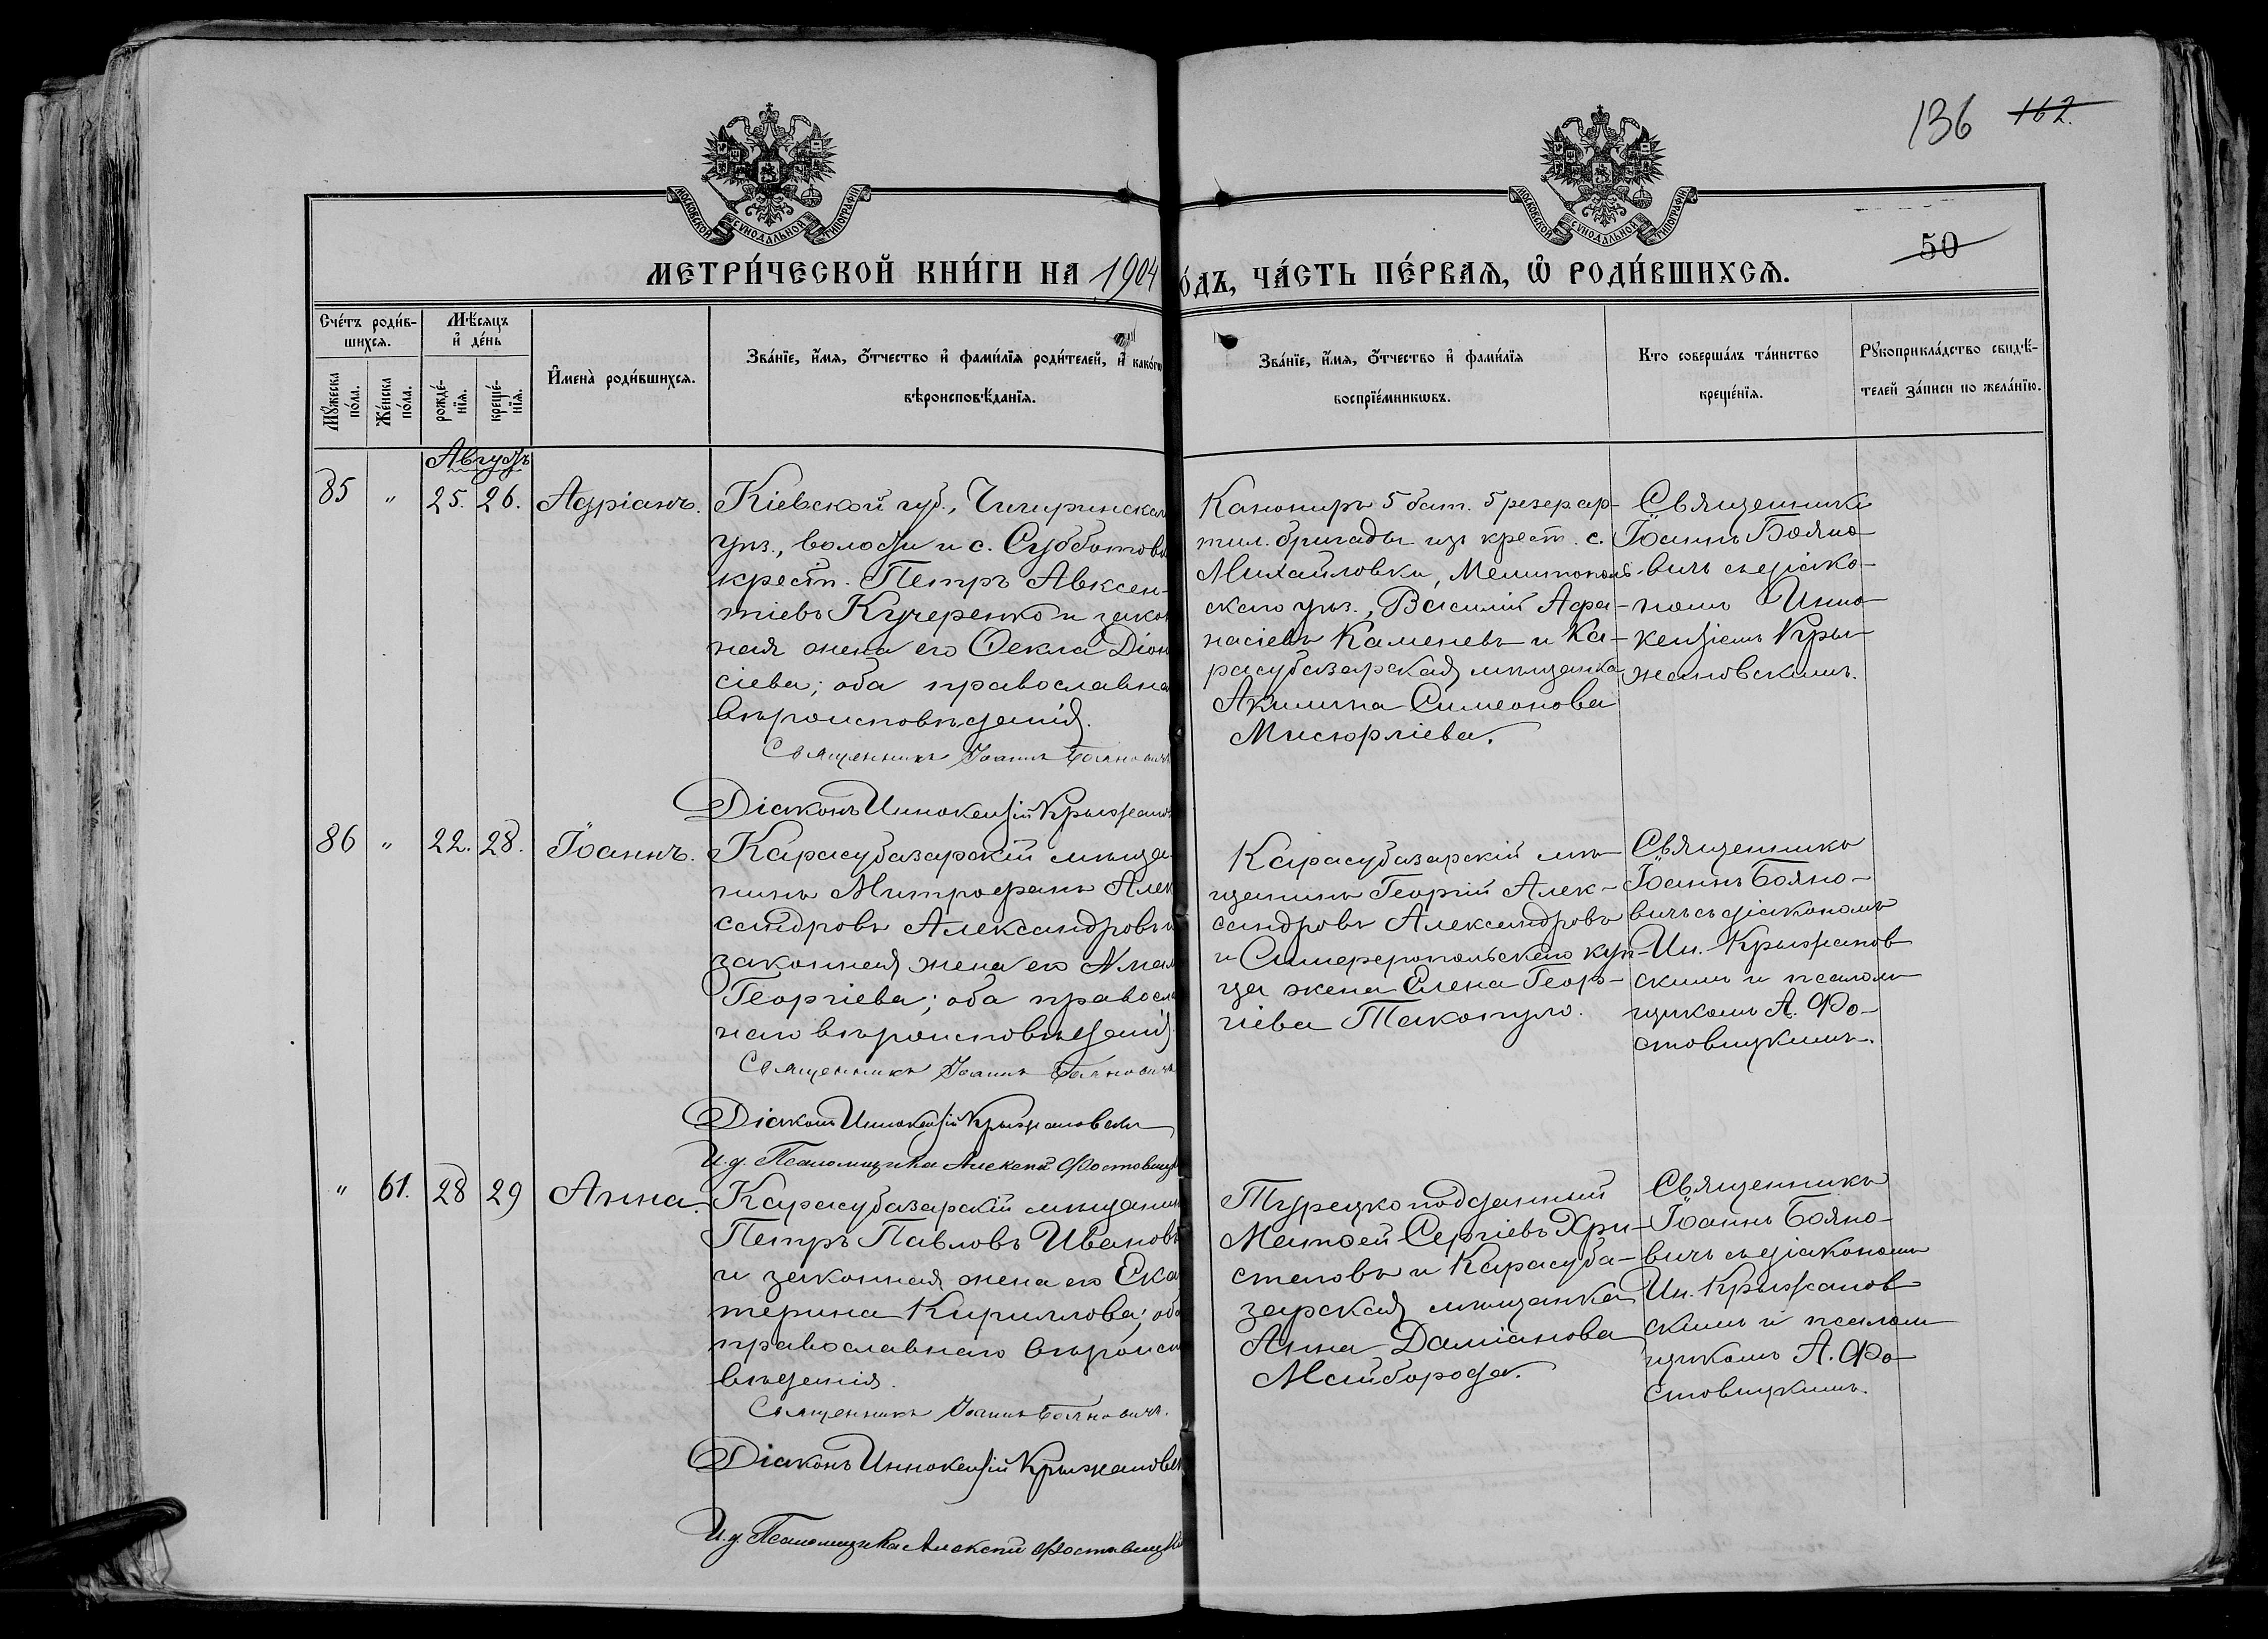 136 162.
МОСКОВСКОЙ СѴНОДАЛЬНОЙ ТИПОГРАФІИ
МОСКОВСКОЙ СѴНОДАЛЬНОЙ ТИПОГРАФІИ
50
МЕТРИ́ЧЕСКОЙ КНИ́ГИ НА 1904
о́дъ, ЧА́СТЬ ПЕ́РВАѦ, Ѡ҆ РОДИ́ВШИХСѦ.
Сче́тъ роди́в-
шихсѧ.
Мꙋ́жеска по́ла.
Же́нска по́ла.
Мѣ́сѧцъ
и҆ де́нь
рожде́-
нїѧ.
креще́-
нїѧ.
И҆мена̀ роди́вшихсѧ.
Зва́нїе, и҆́мѧ, ѻ҆́тчество и҆ фамѝлїѧ роди́телей, и҆ како́гѡ
вѣроисповѣ́данїѧ.
Зва́нїе, и҆́мѧ, ѻ҆́тчество и҆ фами́лїѧ
воспрїе́мникѡвъ.
Кто соверша́лъ та́инство
креще́нїѧ.
Рꙋкоприкла́дство свидѣ́-
телей за́писи по жела́нїю.
Августъ
85 " 25. 26. Адріанъ.
Кіевской губ., Чигиринскаго
уѣз., волости и с. Субботова
крест. Петръ Авксен-
тіевъ Кучеренко и закон
ная жена его Ѳекла Діон
сіева; оба православна
вѣроисповѣданія.
Священникъ Іоаннъ Бояновичъ
Діаконъ Иннокентій Крыжанов
Канониръ 5 бат. 5 резер. ар-
тил. бригады изъ крест. с.
Михайловки, Мелитополь-
скаго уѣз., Василій Афа-
насіевъ Каменевъ и Ка-
расубазарская мѣщанка
Акилина Симеонова
Мисюрліева.
Священникъ
Іоаннъ Бояно-
вичъ съ діако-
номъ Инно-
кентіемъ Кры-
жановскимъ.
86 " 22. 28. Іоаннъ.
Карасубазарскій мѣща
нинъ Митрофанъ Алек
сандровъ Александровъ и
законная жена его
Георгіева; оба правосл
наго вѣроисповѣданія
Священникъ Іоаннъ Бояновичъ
Діаконъ Иннокентій Крыжановскій
И. д. Псаломщика Алексій Фостовицк
Карасубазарскій мѣ-
щанинъ Георгій Алек-
сандровъ Александровъ
и Симферопольскаго куп-
ца жена Елена Геор-
гіева Такопуло.
Священникъ
Іоаннъ Бояно-
вичъ съ діакономъ
Ин. Крыжанов
скимъ и псалом-
щикомъ А. Фо-
стовицкимъ.
" 61. 28 29 Анна.
Карасубазарскій мѣщанинъ
Петръ Павловъ Ивановъ
и законная жена его Ека
терина Кириллова; оба
православнаго вѣроиспо
вѣданія.
Священникъ Іоаннъ Бояновичъ.
Діаконъ Иннокентій Крыжановск
И. д. Псаломщика Алексій Фостовицкі
Турецкоподданный
Матѳей Сергіевъ Хри-
стаповъ и Карасуба-
зарская мѣщанка
Анна Даміанова
Майборода.
Священникъ
Іоаннъ Бояно-
вичъ съ діакономъ
Ин. Крыжанов
скимъ и псалом
щикомъ А. Фо-
стовицкимъ.